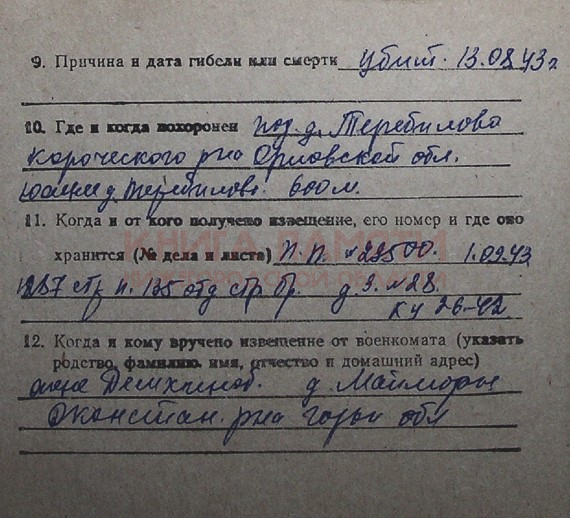 9. Причина и дата гибели или смерти убит. 13.08.43 г
10. Где и когда похоронен под. д. Теребилово
Корочеського р-на Орловской обл.
Южнее д. Теребилово. 600 м.
11. Когда и от кого получено извещение, его номер и где оно
хранится (№ дела и листа) П.П. № 29500. 1.09.43
1287 стр п. 135 отд стр. бр. д. 3. № 28
26-42
12. Когда и кому вручено извещение от военкомата (указать
родство, фамилию, имя, отчество и домашний адрес)
жене д. Майморы
р-на горьк обл
КНИГА ПАМЯТИ